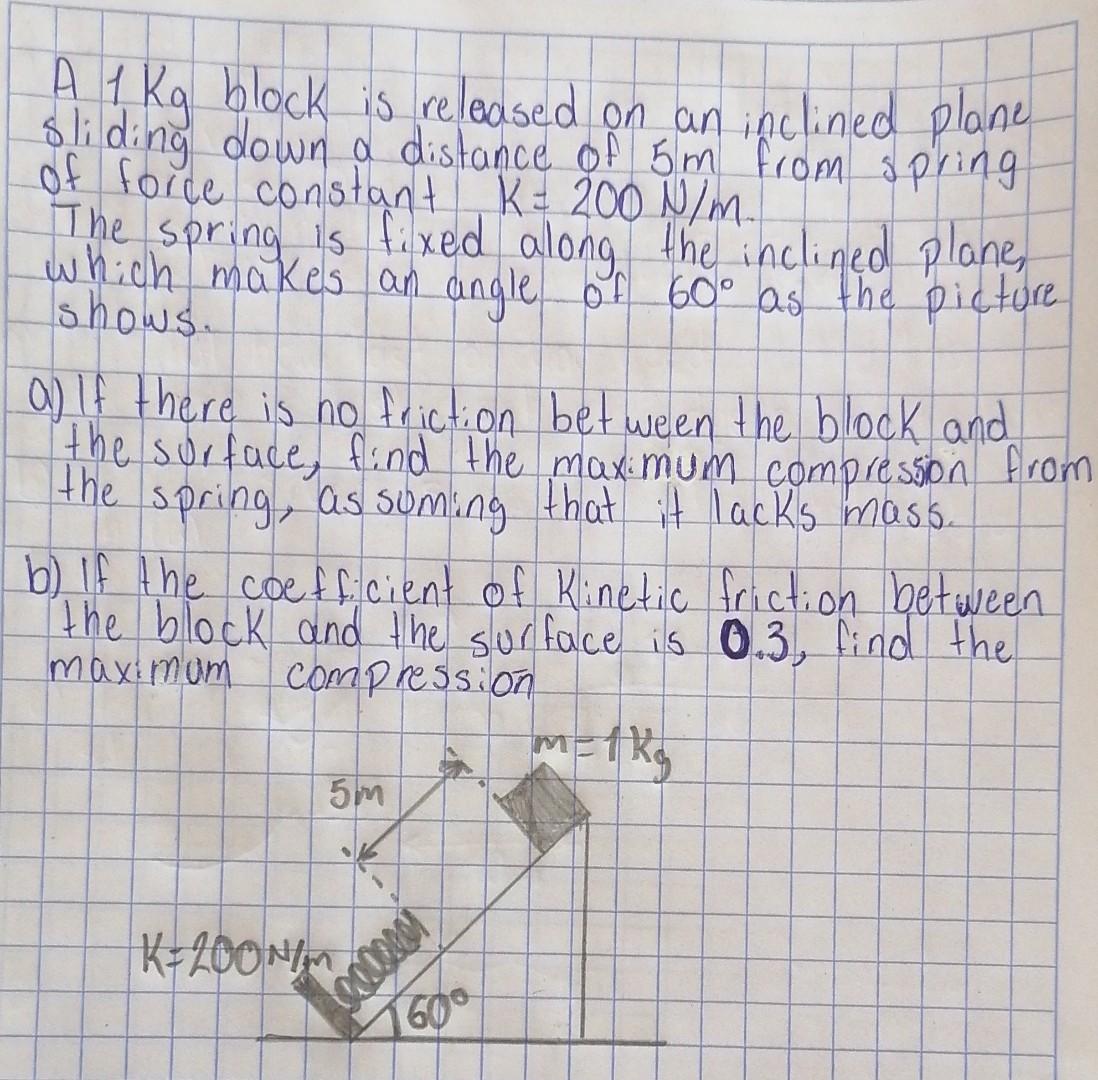 A 1 Kg block is released on an inclined plane
sliding down a distance of 5m from spring
of force constant K = 200 N/m.
The spring is fixed along the inclined plane,
which makes an angle of 60° as the picture
shows.
a) If there is no friction between the block and
the surface, find the maximum compression from
the spring, assuming that it lacks mass.
b) If the coefficient of Kinetic friction between
the block and the surface is 0.3, find the
maximum compression
m=1Kg
5m
K=200N/m
60°